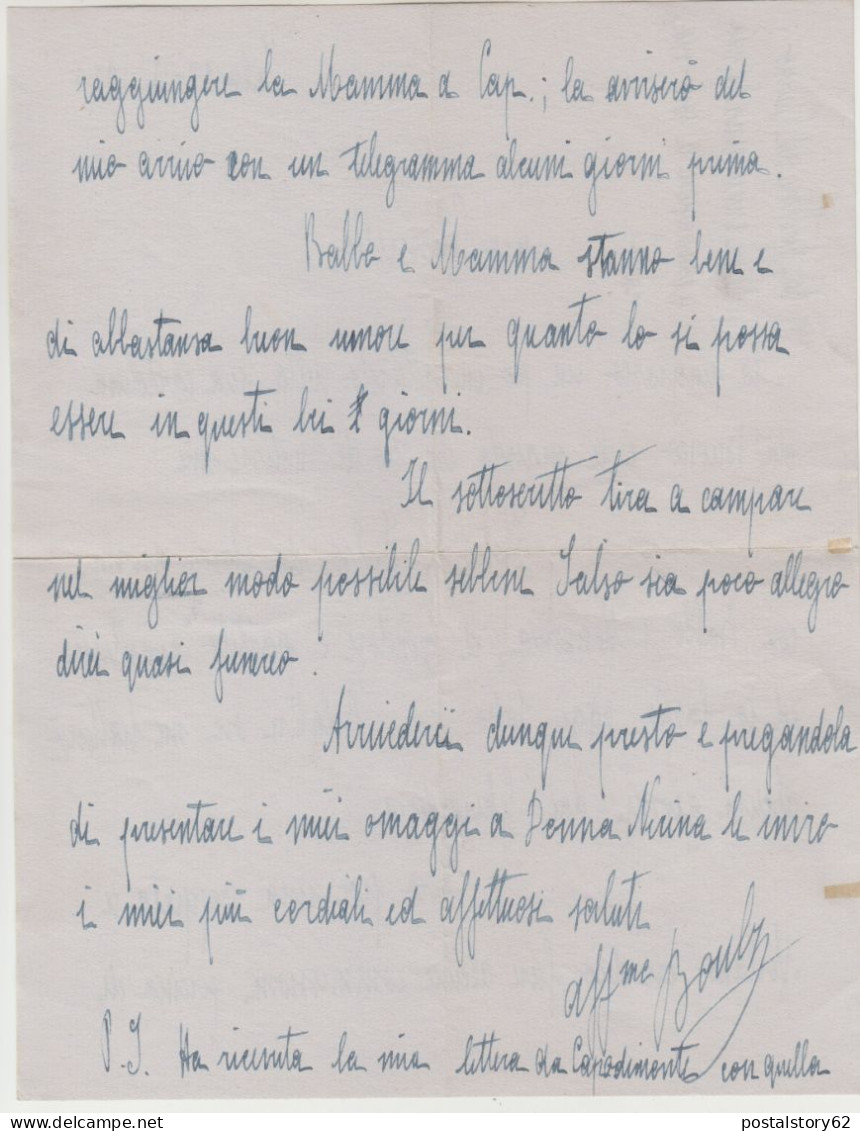 raggiungere la Mamma a Cap.; la avviserò del
mio arrivo con un telegramma alcuni giorni prima.
Babbo e Mamma stanno bene e
di abbastanza buon umore per quanto lo si possa
essere in questi bei giorni.
Il sottoscritto tira a campare
nel miglior modo possibile sebbene Salso sia poco allegro
direi quasi funereo.
Arrivederci dunque presto e pregandola
di presentare i miei omaggi a Donna Nerina le invio
i miei più cordiali ed affettuosi saluti
aff me
P.S. Ha ricevuta la mia lettera da Capodimonte con quella
postalstory62